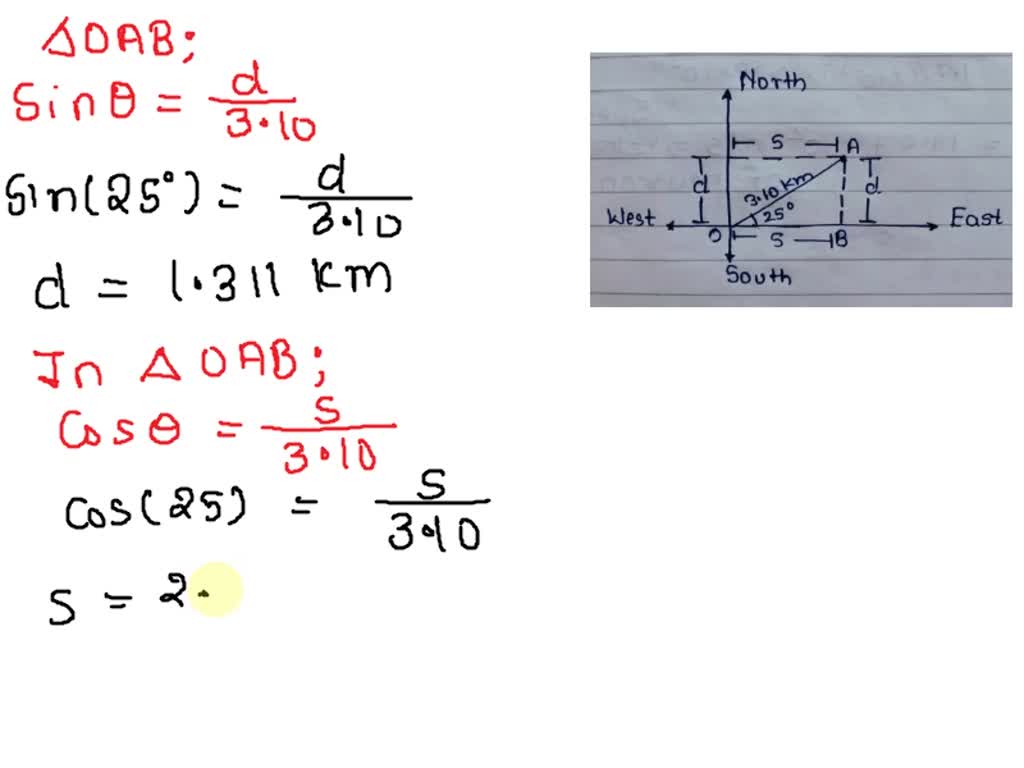 ΔOAB;
Sinθ = d/3.10
Sin(25°) = d/3.10
d = 1.311 km
In Δ OAB;
Cosθ = s/3.10
Cos(25) = s/3.10
S = 2.
North
S
A
d
3.10 km
d
25°
West
East
O
S
B
South